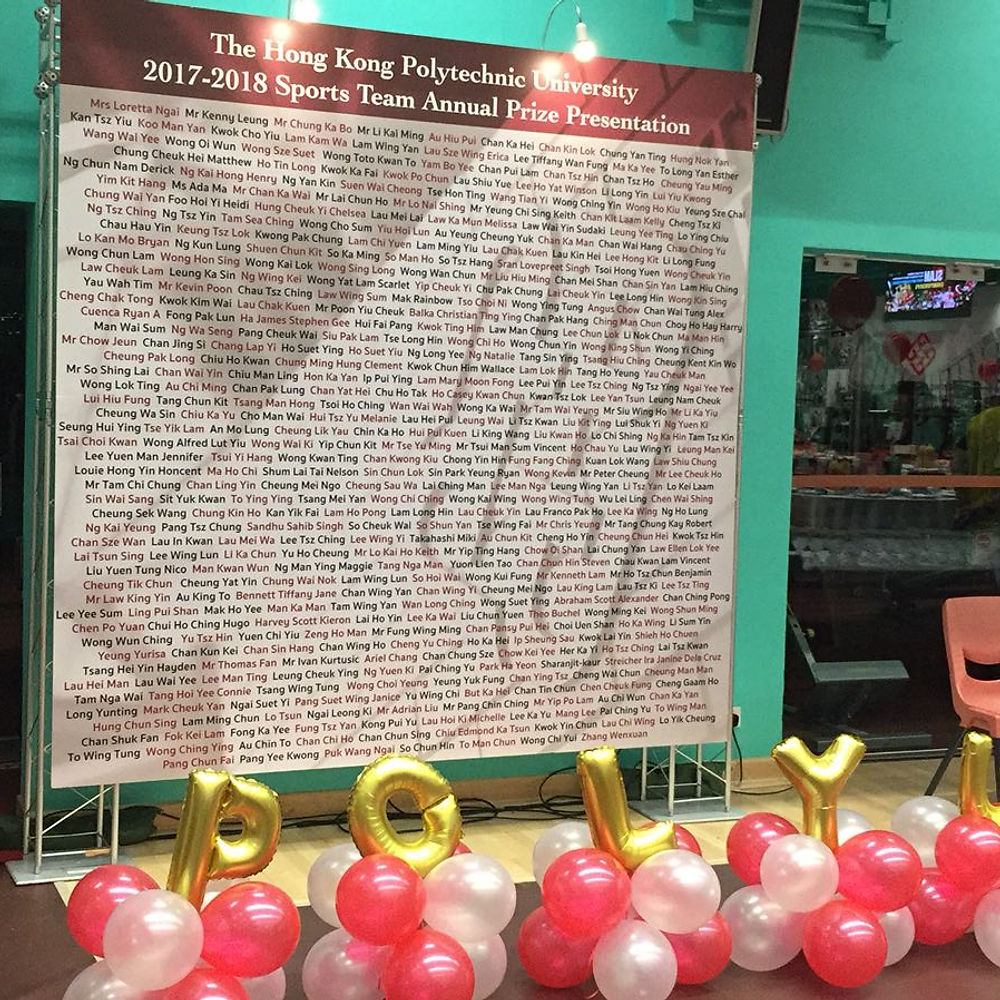 The Hong Kong Polytechnic University
2017-2018 Sports Team Annual Prize Presentation
Mrs Loretta Ngai Mr Kenny Leung Mr Chung Ka Bo Mr Li Kai Ming Au Hiu Pui Chan Ka Hei Chan Kin Lok Chung Yan Ting Hung Nok Yan
Kan Tsz Yiu Koo Man Yan Kwok Cho Yiu Lam Kam Wa Lam Wing Yan Lau Sze Wing Erica Lee Tiffany Wan Fung Ma Ka Yee To Long Yan Esther
Wang Wai Yee Wong Oi Wun Wong Sze Suet Wong Toto Kwan To Yam Bo Yee Chan Pui Lam Chan Tsz Hin Chan Tsz Ho Cheung Yau Ming
Chung Cheuk Hei Matthew Ho Tin Long Kwok Ka Fai Kwok Po Chun Lau Shiu Yue Lee Ho Yat Winson Li Long Yin Lui Yiu Kwong
Ng Chun Nam Derick Ng Kai Hong Henry Ng Yan Kin Suen Wai Cheong Tse Hon Ting Wang Tian Yi Wong Ching Yin Wong Ho Kiu Yeung Sze Chai
Yim Kit Hang Ms Ada Ma Mr Chan Ka Wai Mr Lai Chun Ho Mr Lo Nai Shing Mr Yeung Chi Sing Keith Chan Kit Laam Kelly Cheng Tsz Ki
Chung Wai Yan Foo Hoi Yi Heidi Hung Cheuk Yi Chelsea Lau Mei Lai Law Ka Mun Melissa Law Wai Yin Sudaki Leung Yee Ting Lo Ying Chiu
Ng Tsz Ching Ng Tsz Yin Tam Sea Ching Wong Cho Sum Yiu Hoi Lun Au Yeung Cheung Yuk Chan Ka Man Chan Wai Hang Chau Ching Yu
Chau Hau Yin Keung Tsz Lok Kwong Pak Chung Lam Chi Yuen Lam Ming Yiu Lau Chak Kuen Lau Kin Hei Lee Hong Kit Li Long Fung
Lo Kan Mo Bryan Ng Kun Lung Shuen Chun Kit So Ka Ming So Man Ho So Tsz Hang Sran Lovepreet Singh Tsoi Hong Yuen Wong Cheuk Yin
Wong Chun Lam Wong Hon Sing Wong Kai Lok Wong Sing Long Wong Wan Chun Mr Liu Hiu Ming Chan Mei Shan Chan Sin Yan Lam Hiu Ching
Law Cheuk Lam Leung Ka Sin Ng Wing Kei Wong Yat Lam Scarlet Yip Cheuk Yi Chu Pak Chung Lai Cheuk Yin Lee Long Hin Wong Kin Sing
Yau Wah Tim Mr Kevin Poon Chau Tsz Ching Law Wing Sum Mak Rainbow Tso Choi Ni Wong Ying Tung Angus Chow Chan Wai Tung Alex
Cheng Chak Tong Kwok Kim Wai Lau Chak Kuen Mr Poon Yiu Cheuk Balka Christian Ting Ying Chan Pak Hang Ching Man Chun Choy Ho Hay Harry
Cuenca Ryan A Fong Pak Lun Ha James Stephen Gee Hui Fai Pang Kwok Ting Hin Law Man Chung Lee Chun Lok Li Nok Chun Ma Man Hin
Man Wai Sum Ng Wa Seng Pang Cheuk Wai Siu Pak Lam Tse Long Hin Wong Chi Ho Wong Chun Yin Wong King Shun Wong Yi Ching
Mr Chow Jeun Chan Jing Si Chang Lap Yi Ho Suet Ying Ho Suet Yiu Ng Long Yee Ng Natalie Tang Sin Ying Tsang Hiu Ching Cheung Kent Kin Wo
Cheung Pak Long Chiu Ho Kwan Chung Ming Hung Clement Kwok Chun Him Wallace Lam Lok Hin Tang Ho Yeung Yau Cheuk Man
Mr So Shing Lai Chan Wai Yin Chiu Man Ling Hon Ka Yan Ip Pui Ying Lam Mary Moon Fong Lee Pui Yin Lee Tsz Ching Ng Tsz Ying Ngai Yee Yee
Wong Lok Ting Au Chi Ming Chan Pak Lung Chan Yat Hei Chu Ho Tak Ho Casey Kwan Chun Kwan Tsz Lok Lee Yan Tsun Leung Nam Cheuk
Lui Hiu Fung Tang Chun Kit Tsang Man Hong Tsoi Ho Ching Wan Wai Wah Wong Ka Wai Mr Tam Wai Yeung Mr Siu Wing Ho Mr Li Ka Yiu
Cheung Wa Sin Chiu Ka Yu Cho Man Wai Hui Tsz Yu Melanie Lau Hei Pui Leung Wai Li Tsz Kwan Liu Kit Ying Lui Shuk Yi Ng Yuen Ki
Seung Hui Ying Tse Yik Lam An Mo Lung Cheung Lik Yau Chin Ka Ho Hui Pui Kuen Li King Wang Liu Kwan Ho Lo Chi Shing Ng Ka Hin Tam Tsz Kin
Tsai Choi Kwan Wong Alfred Lut Yiu Wong Wai Ki Yip Chun Kit Mr Tse Yu Ming Mr Tsui Man Sum Vincent Ho Chau Yu Lau Wing Yi Leung Man Kei
Lee Yuen Man Jennifer Tsui Yi Hang Wong Kwan Ting Chan Kwong Kiu Chong Yin Hin Fung Fang Ching Kuan Lok Wang Law Shiu Chung
Louie Hong Yin Honcent Ma Ho Chi Shum Lai Tai Nelson Sin Chun Lok Sin Park Yeung Ryan Wong Kevin Mr Peter Cheung Mr Lee Cheuk Ho
Mr Tam Chi Chung Chan Ling Yin Cheung Mei Ngo Cheung Sau Wa Lai Ching Man Lee Man Nga Leung Wing Yan Li Tsz Yan Lo Kei Laam
Sin Wai Sang Sit Yuk Kwan To Ying Ying Tsang Mei Yan Wong Chi Ching Wong Kai Wing Wong Wing Tung Wu Lei Ling Chen Wai Shing
Cheung Sek Wang Chung Kin Ho Kan Yik Fai Lam Ho Pong Lam Long Hin Lau Cheuk Yin Lau Franco Pak Ho Lee Ka Wing Ng Ho Lung
Ng Kai Yeung Pang Tsz Chung Sandhu Sahib Singh So Cheuk Wai Su Shun Yan Tse Wing Fai Mr Chris Yeung Mr Tang Chung Kay Robert
Chan Sze Wan Lau In Kwan Lau Mei Wa Lee Tsz Ching Lee Wing Yi Takahashi Miki Au Chun Kit Cheng Ho Yin Cheung Chun Hei Kwok Tsz Hin
Lai Tsun Sing Lee Wing Lun Li Ka Chun Yu Ho Cheung Mr Lo Kai Ho Keith Mr Yip Ting Hang Chow Oi Shan Lai Chung Yan Law Ellen Lok Yee
Liu Yuen Tung Nico Man Kwan Wun Ng Man Ying Maggie Tang Nga Man Yuon Lien Tao Chan Chun Hin Steven Chau Kwan Lam Vincent
Cheung Tik Chun Cheung Yat Yin Chung Wai Nok Lam Wing Lun So Hoi Wai Wong Kui Fung Mr Kenneth Lam Mr Ho Tsz Chun Benjamin
Mr Law King Yin Au King To Bennett Tiffany Jane Chan Wing Yan Chan Wing Yi Cheung Mei Ngo Lau King Lam Lau Tsz Ki Lee Tsz Ting
Lee Yee Sum Ling Pui Shan Mak Ho Yee Man Ka Man Tam Wing Yan Wan Long Ching Wong Suet Ying Abraham Scott Alexander Chan Ching Pong
Chen Po Yuan Chui Ho Ching Hugo Harvey Scott Kieron Lai Ho Yin Lee Ka Wai Liu Chun Yuen Theo Buchel Wong Ming Kei Wong Shun Ming
Wong Wun Ching Yu Tsz Hin Yuen Chi Yiu Zeng Ho Man Mr Fung Wing Ming Chan Pansy Pui Hei Choi Uen Shan Ho Ka Wing Li Sum Yin
Yeung Yurisa Chan Kun Kei Chan Sin Hang Chan Wing Ho Cheng Yu Ching Ho Ka Hei Ip Sheung Sau Kwok Lai Yin Shieh Ho Chuen
Tsang Hei Yin Hayden Mr Thomas Fan Mr Ivan Kurtusic Ariel Chang Chan Chung Sze Chow Kei Yee Her Ka Yi Ho Tsz Ching Lai Tsz Kwan
Lau Hei Man Lau Wai Yee Lee Man Ting Leung Cheuk Ying Ng Yuen Ki Pai Ching Yu Park Ha Yeon Sharanjit-kaur Streicher Ira Janine Dela Cruz
Tam Nga Wai Tang Hoi Yee Connie Tsang Wing Tung Wong Choi Yeung Yeung Yuk Fung Chan Ying Tsz Cheng Wai Chun Cheung Man Man
Long Yunting Mark Cheuk Yan Ngai Suet Yi Pang Suet Wing Janice Yu Wing Chi But Ka Hei Chan Tin Chun Chen Cheuk Fung Cheng Gaam Ho
Hung Chun Sing Lam Ming Chun Lo Tsun Ngai Leong Ki Mr Adrian Liu Mr Pang Chin Ching Mr Yip Po Lam Au Chi Wun Chan Ka Yan
Chan Shuk Fan Fok Kei Lam Fong Ka Yee Fung Tsz Yan Kong Pui Yu Lau Hoi Ki Michelle Lee Ka Yu Mang Lee Pai Ching Yu To Wing Man
To Wing Tung Wong Ching Ying Au Chin To Chan Chi Ho Chan Chun Sing Chiu Edmond Ka Tsun Kwok Yin Chun Lau Chi Wing Lo Yik Cheung
Pang Chun Fai Pang Yee Kwong Puk Wang Ngai So Chun Hin To Man Chun Wong Chi Yui Zhang Wenxuan
POLYU